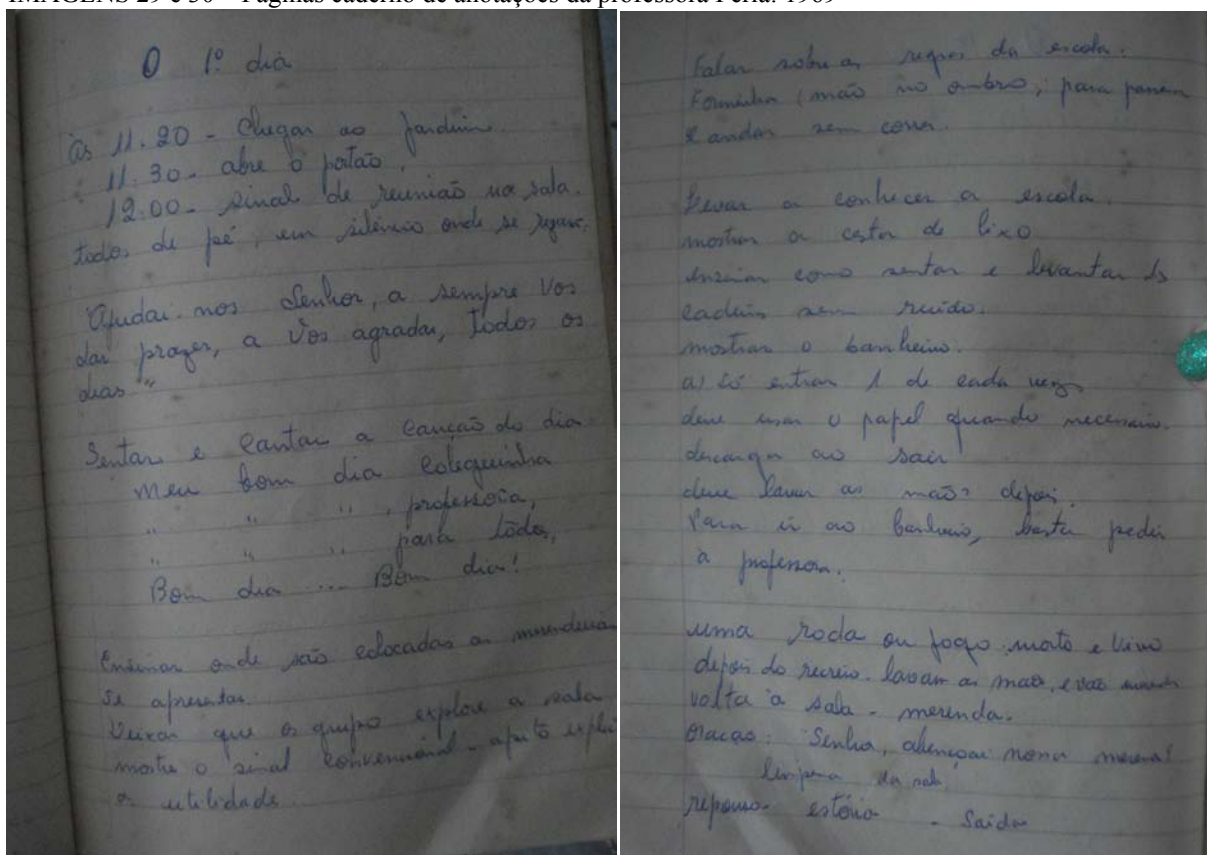 IMAGENS 29 e 30 – Páginas caderno de anotações da professora Perla. 1969
O 1º dia
às 11.20 - Chegar ao jardim.
11.30 - abre o portão.
12.00 - sinal de reunião na sala.
todos de pé, em silêncio onde se
"Ajudai-nos Senhor, a sempre Vos
dar prazer, a Vos agradar, todos os
dias"
Sentar e cantar a canção do dia
Meu bom dia coleguinha
" " " , professora,
" " " para todos,
Bom dia ... Bom dia!
Ensinar onde são colocadas as merendeiras
se apresentar.
Deixar que o grupo explore a sala
mostre o sinal convencional - apito
a utilidade.
Falar sobre as regras da escola.
Forminha (mão no ombro, para
e andar sem correr.
Levar a conhecer a escola.
mostrar a cesta de lixo
ensinar como sentar e levantar
cadeira sem ruído.
mostrar o banheiro.
a) só entrar 1 de cada vez
deve usar o papel quando necessário.
descarga ao sair
deve lavar as mãos depois.
Para ir ao banheiro, basta pedir
à professora.
uma roda ou jogo morto e vivo
depois do recreio. lavam as mãos, e vão
volta à sala - merenda.
oração: Senhor, abençoai nossa
limpeza da sala
repouso - estória - Saída